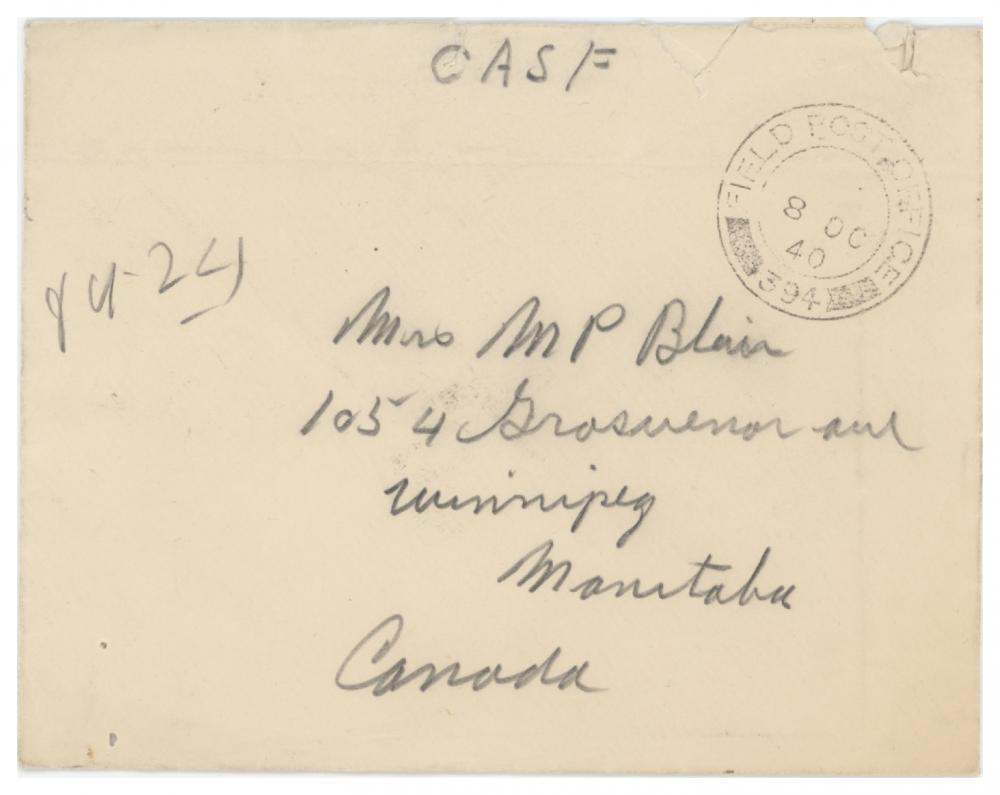 CASF
FIELD POST OFFICE
8 OC
40
394
Mrs M P Blair
1054 Grosvenor ave
Winnipeg
Manitoba
Canada